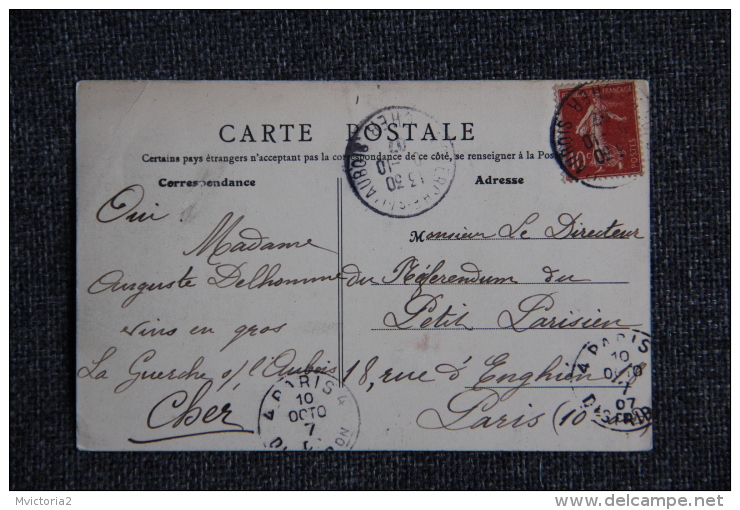 CARTE POSTALE
Certains pays étrangers n'acceptant pas la correspondance de ce côté, se renseigner à la Poste
Correspondance
Adresse
Oui
Madame
Auguste Delhomme
vins en gros
La Guerche s/ l'Aubois
Cher
Monsieur Le Directeur
du Référendum du
Petit Parisien
18, rue d'Enghien 18
Paris (10
PARIS 4
10
OCTO
7
PARIS
10
OCTO
7
07
DISTRIB
13 30
10
CHER
10
POSTES
Mvictoria2
http://www.delcampe.net